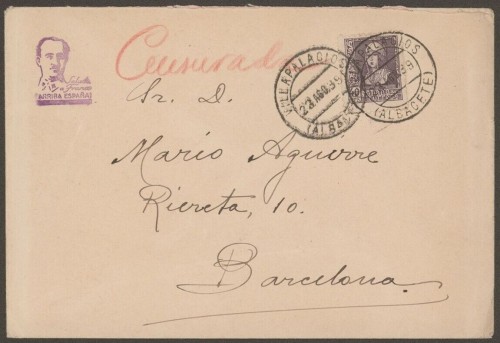 Saludo
a Franco
¡ARRIBA ESPAÑA!
Censurado
VILLAPALACIOS
23.AGO.39
(ALBACETE)
VILLAPALACIOS
(ALBACETE)
Sr. D.
Mario Aguirre
Riereta, 10.
Barcelona.